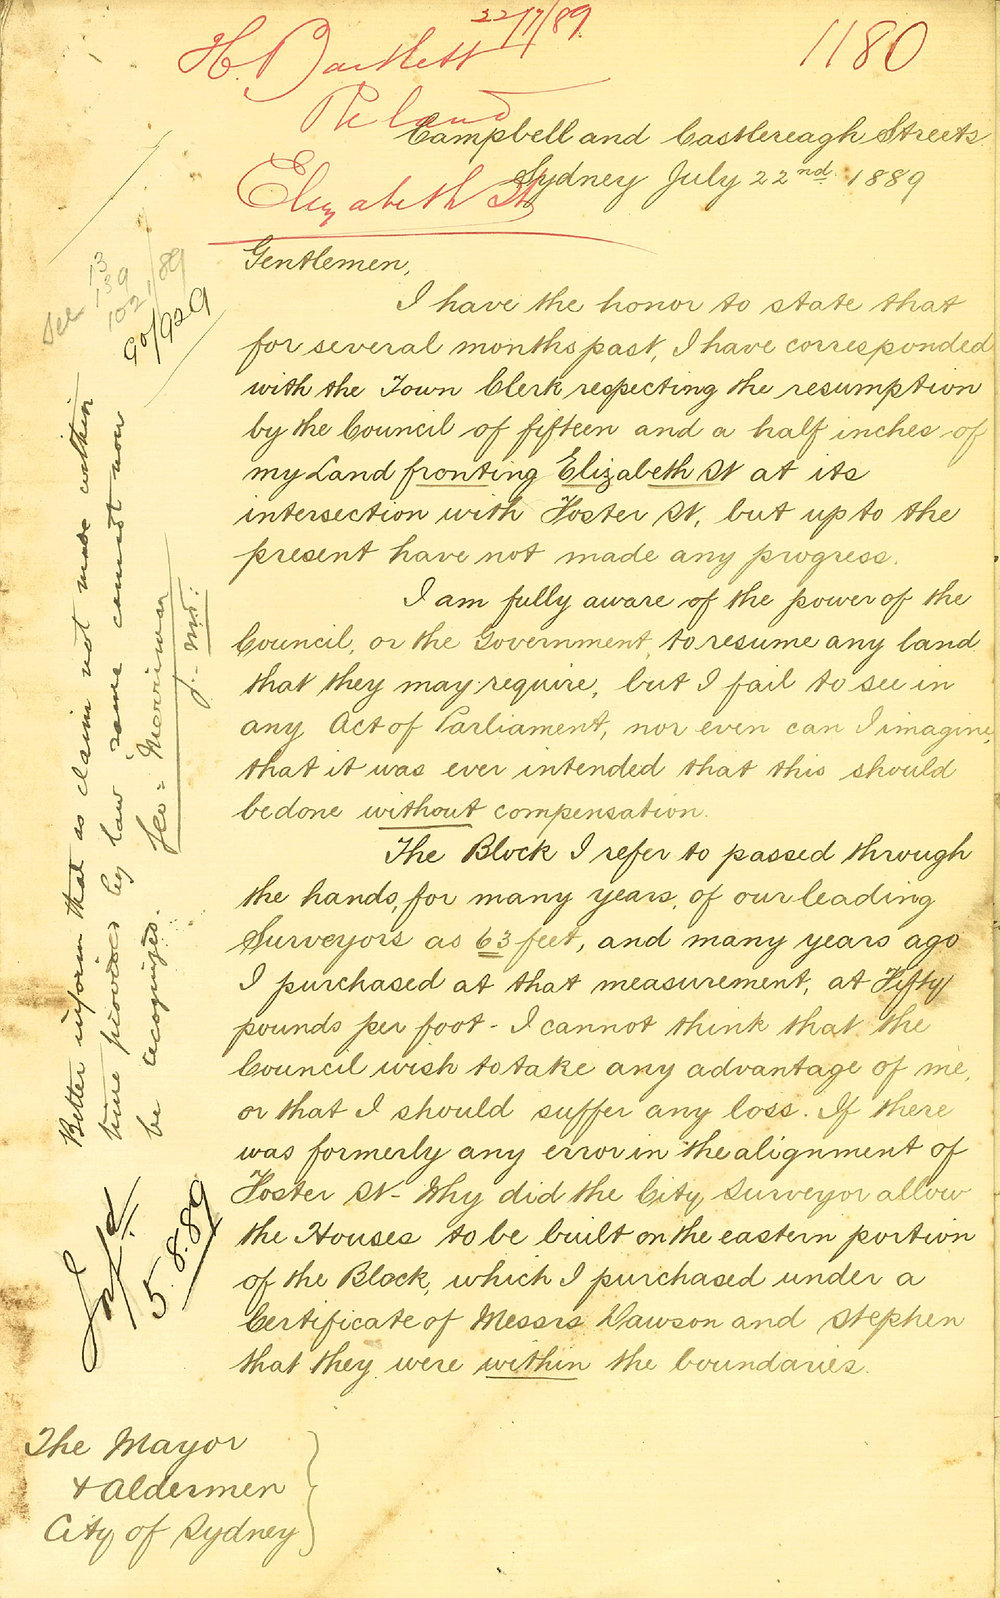 22/7/89
1180
H. Bartlett
Re land
Elizabeth St
Campbell and Castlereagh Streets
Sydney July 22nd 1889
Gentlemen,
I have the honor to state that
for several months past, I have corresponded
with the Town Clerk respecting the resumption
by the Council of fifteen and a half inches of
my Land fronting Elizabeth St at its
intersection with Foster St, but up to the
present have not made any progress.
I am fully aware of the power of the
Council, or the Government, to resume any land
that they may require, but I fail to see in
any Act of Parliament, nor even can I imagine,
that it was ever intended that this should
be done without compensation.
The Block I refer to passed through
the hands, for many years, of our leading
Surveyors as 63 feet, and many years ago
I purchased at that measurement, at Fifty
pounds per foot - I cannot think that the
Council wish to take any advantage of me,
or that I should suffer any loss. If there
was formerly any error in the alignment of
Foster St - Why did the City Surveyor allow
the Houses to be built on the eastern portion
of the Block, which I purchased under a
Certificate of Messrs Dawson and Stephen
that they were within the boundaries.
The Mayor
& Aldermen
City of Sydney
See 13
139
102/89
90/929
Better inform that as claim not made within
time provided by law same cannot now
be recognized. Geo: Merriman
5.8.89